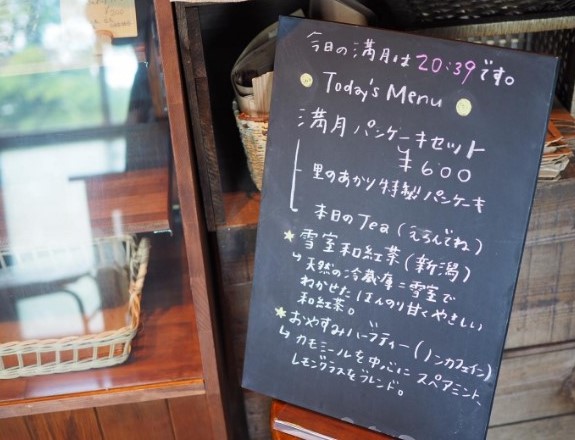 今日の満月は20:39です。
Today's Menu
満月パンケーキセット
¥600
里のあかり特製パンケーキ
本日のTea(えらんでね)
★雪室和紅茶(新潟)
↳天然の冷蔵庫=雪室で
ねかせたほんのり甘くやさしい
和紅茶。
★おやすみハーブティー(ノンカフェイン)
↳カモミールを中心にスペアミント、
レモングラスをブレンド。